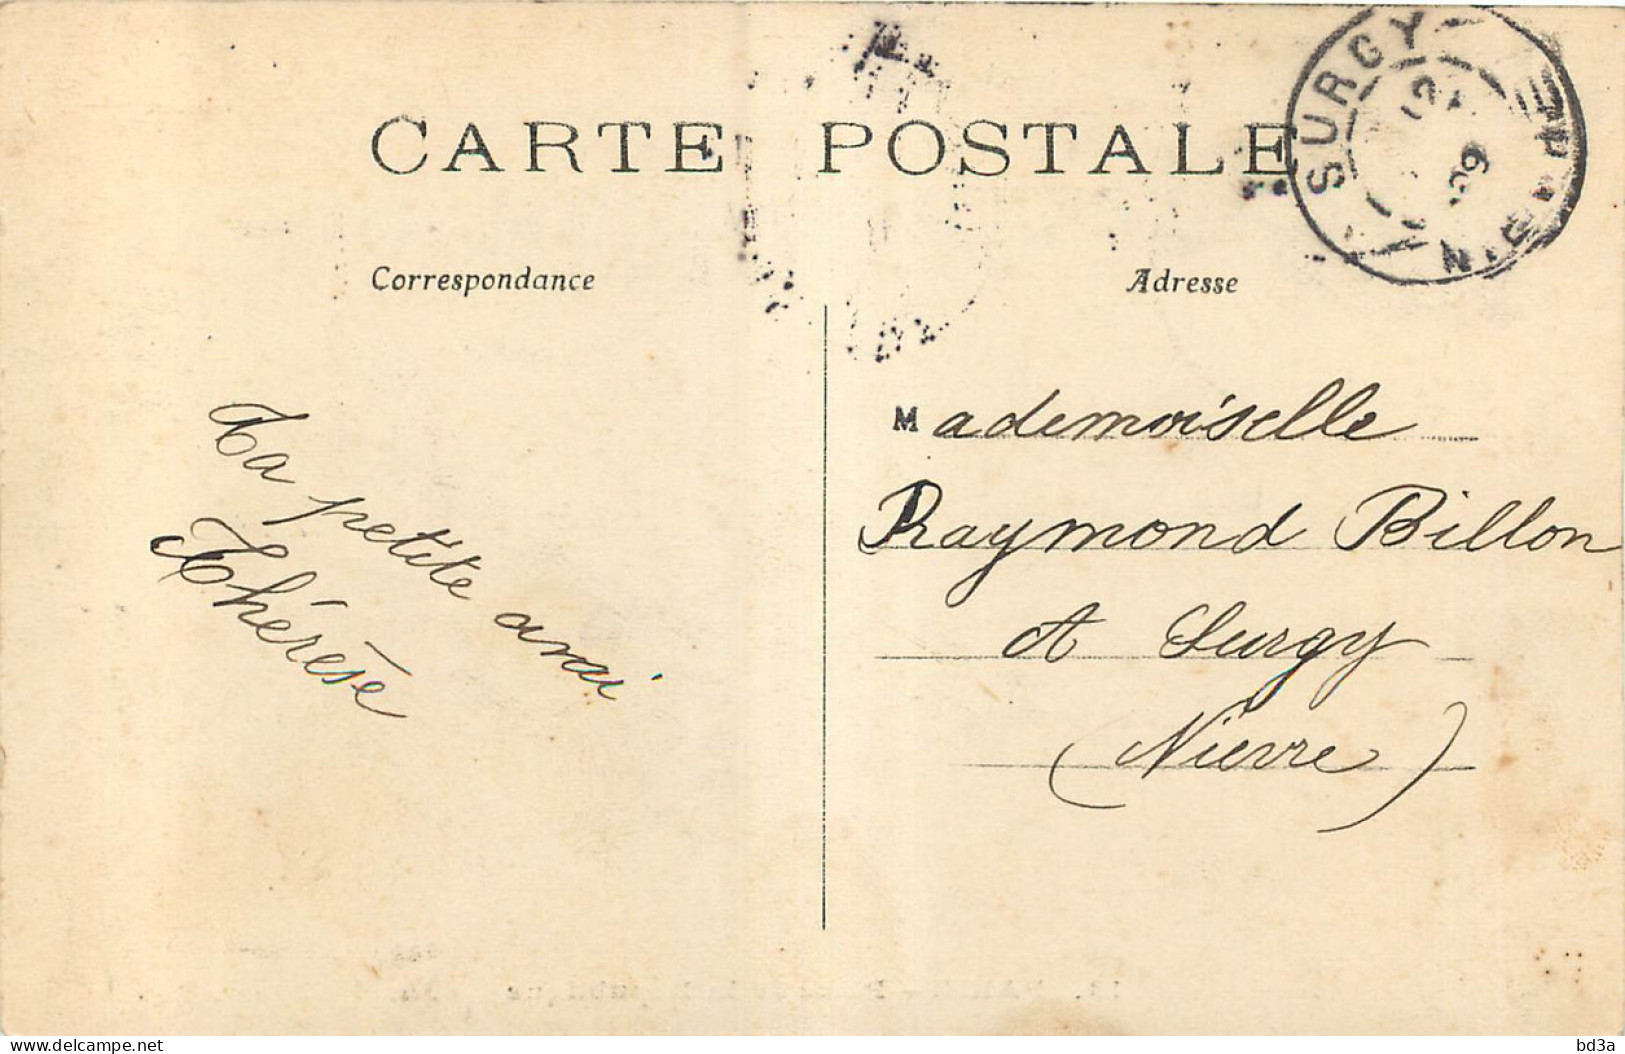 CARTE POSTALE
Correspondance
Adresse
SURGY
09
Ta petite amie
Thérèse
Mademoiselle
Raymond Billon
A Surgy
(Nievre)
delcampe.net
bd3a